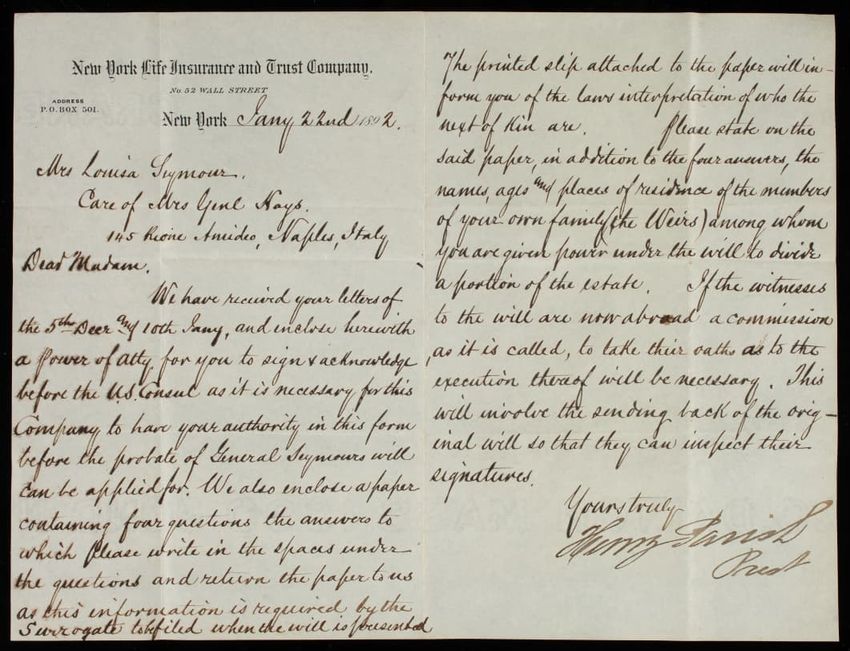 New York Life Insurance and Trust Company.
No. 52 WALL STREET
ADDRESS
P.O. BOX 501.
New York Jany 22nd 1892.
Mrs Louisa Seymour.
Care of Mrs Genl Hays.
145 Rione Amideo, Naples, Italy
Dear Madam.
We have received your letters of
the 5th Decr and 10th Jany, and inclose herewith
a Power of atty for you to sign & acknowledge
before the U.S. Consul as it is necessary for this
Company to have your authority in this form
before the probate of General Seymours will
can be applied for. We also enclose a paper
containing four questions the answers to
which please write in the spaces under
the questions and return the paper to us
as this information is required by the
Surrogate to be filed when the will is presented
The printed slip attached to the paper will in-
form you of the laws interpretation of who the
next of kin are. Please state on the
said paper, in addition to the four answers, the
names, ages and places of residence of the members
of your own family (the Weirs) among whom
you are given power under the will to divide
a portion of the estate. If the witnesses
to the will are now abroad a commission
as it is called, to take their oaths as to the
execution thereof will be necessary. This
will involve the sending back of the orig-
inal will so that they can inspect their
signatures.
Yours truly
Henry Parish
Prest